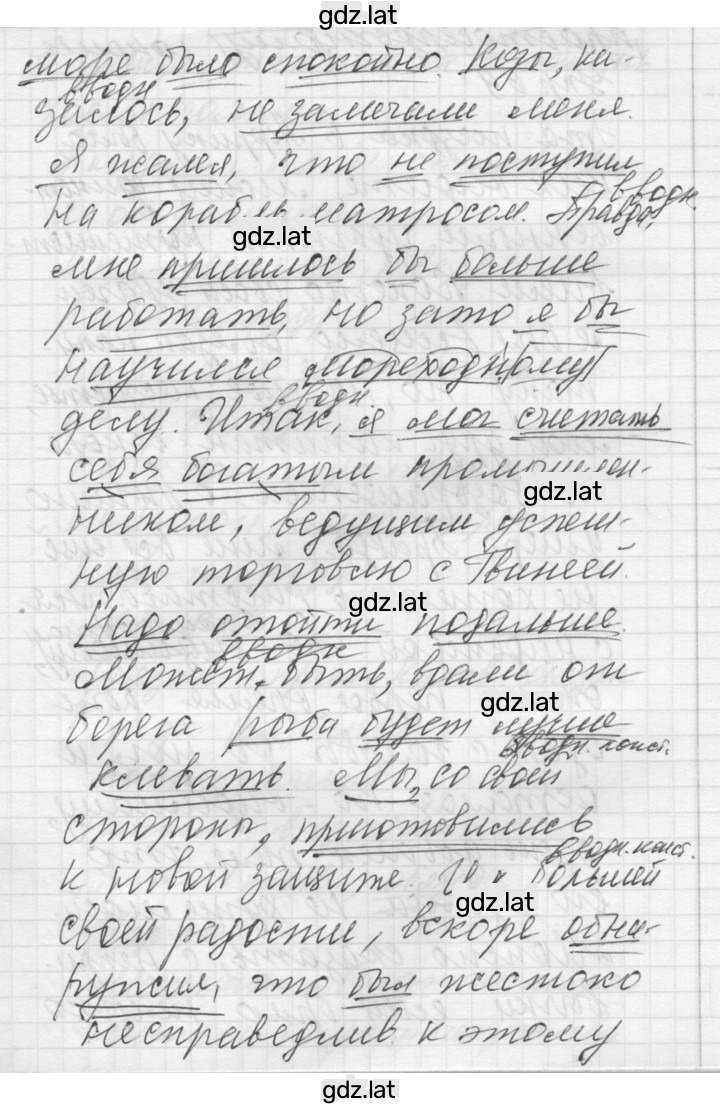 gdz.lat
море было спокойно. Козы, ка-
вводн
залось, не замечали меня.
Я жалел, что не поступил
вводн.
на корабль матросом. Правда,
gdz.lat
мне пришлось бы больше
работать, но зато я бы
научился мореходному
вводн.
делу. Итак, я мог считать
себя богатым промышлен-
gdz.lat
ником, ведущим успеш-
ную торговлю с Гвинеей.
gdz.lat
Надо отойти подальше.
вводн
Может быть, вдали от
gdz.lat
берега рыба будет лучше
вводн. конст.
клевать. Мы, со своей
стороны, приготовились
вводн. конст.
к новой защите. К большей
gdz.lat
своей радости, вскоре обна-
ружил, что был жестоко
несправедлив к этому
gdz.lat